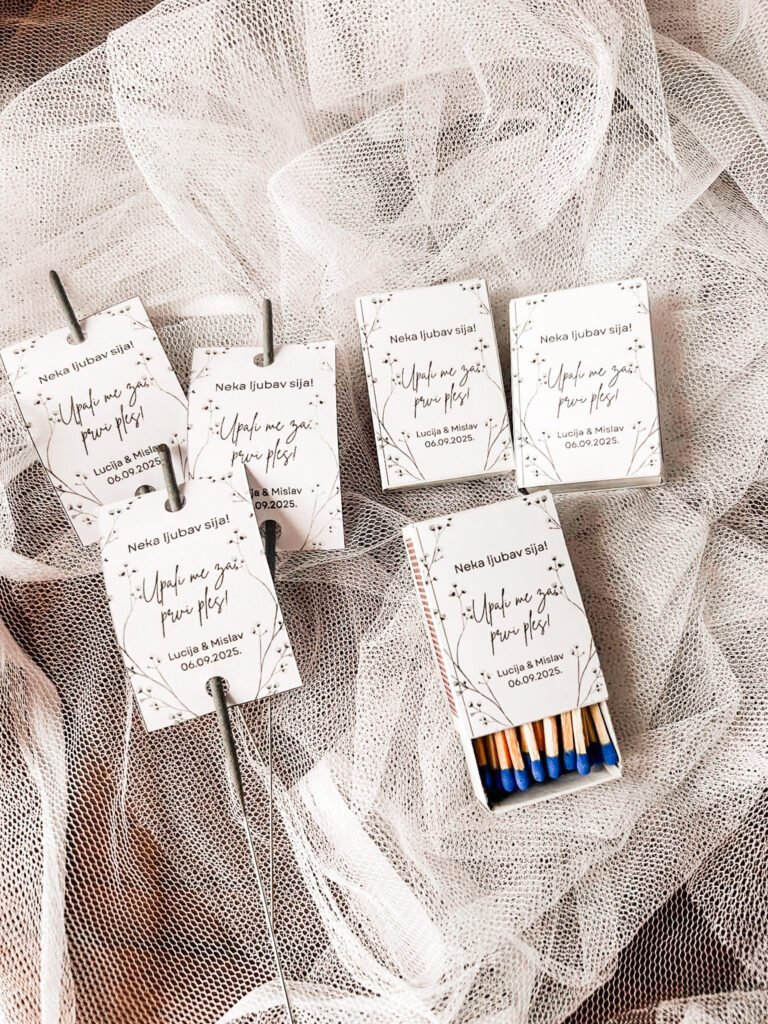 Neka ljubav sija!
Upali me za
prvi ples!
Lucija & Mislav
06.09.2025.
Neka ljubav sija!
Upali me za
prvi ples!
Lucija & Mislav
.09.2025.
Neka ljubav sija!
Upali me za
prvi ples!
Lucija & Mislav
06.09.2025.
Neka ljubav sija!
Upali me za
prvi ples!
Lucija & Mislav
06.09.2025.
Neka ljubav sija!
Upali me za
prvi ples!
Lucija & Mislav
06.09.2025.
Neka ljubav sija!
Upali me za
prvi ples!
Lucija & Mislav
06.09.2025.